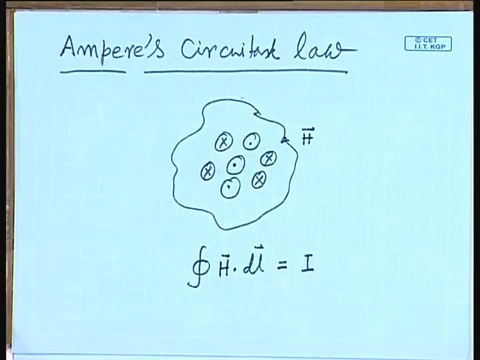 Ampere's Circuital law
© CET
I.I.T. KGP
x . H⃗
x . x
. x
∮ H⃗ · dl⃗ = I